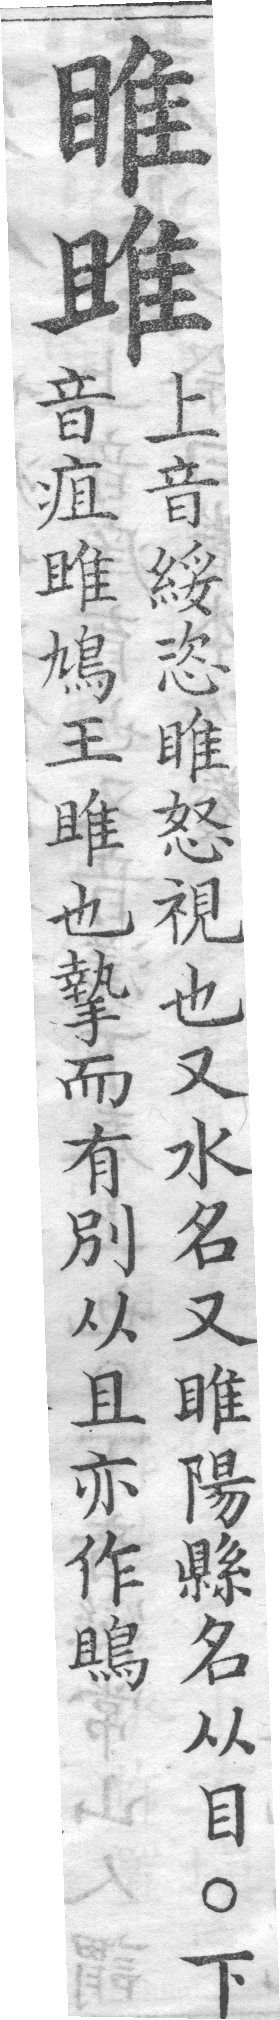 睢雎
上音綏恣睢怒視也又水名又睢陽縣名从目○下
音疽雎鳩王雎也摯而有別从且亦作鴡